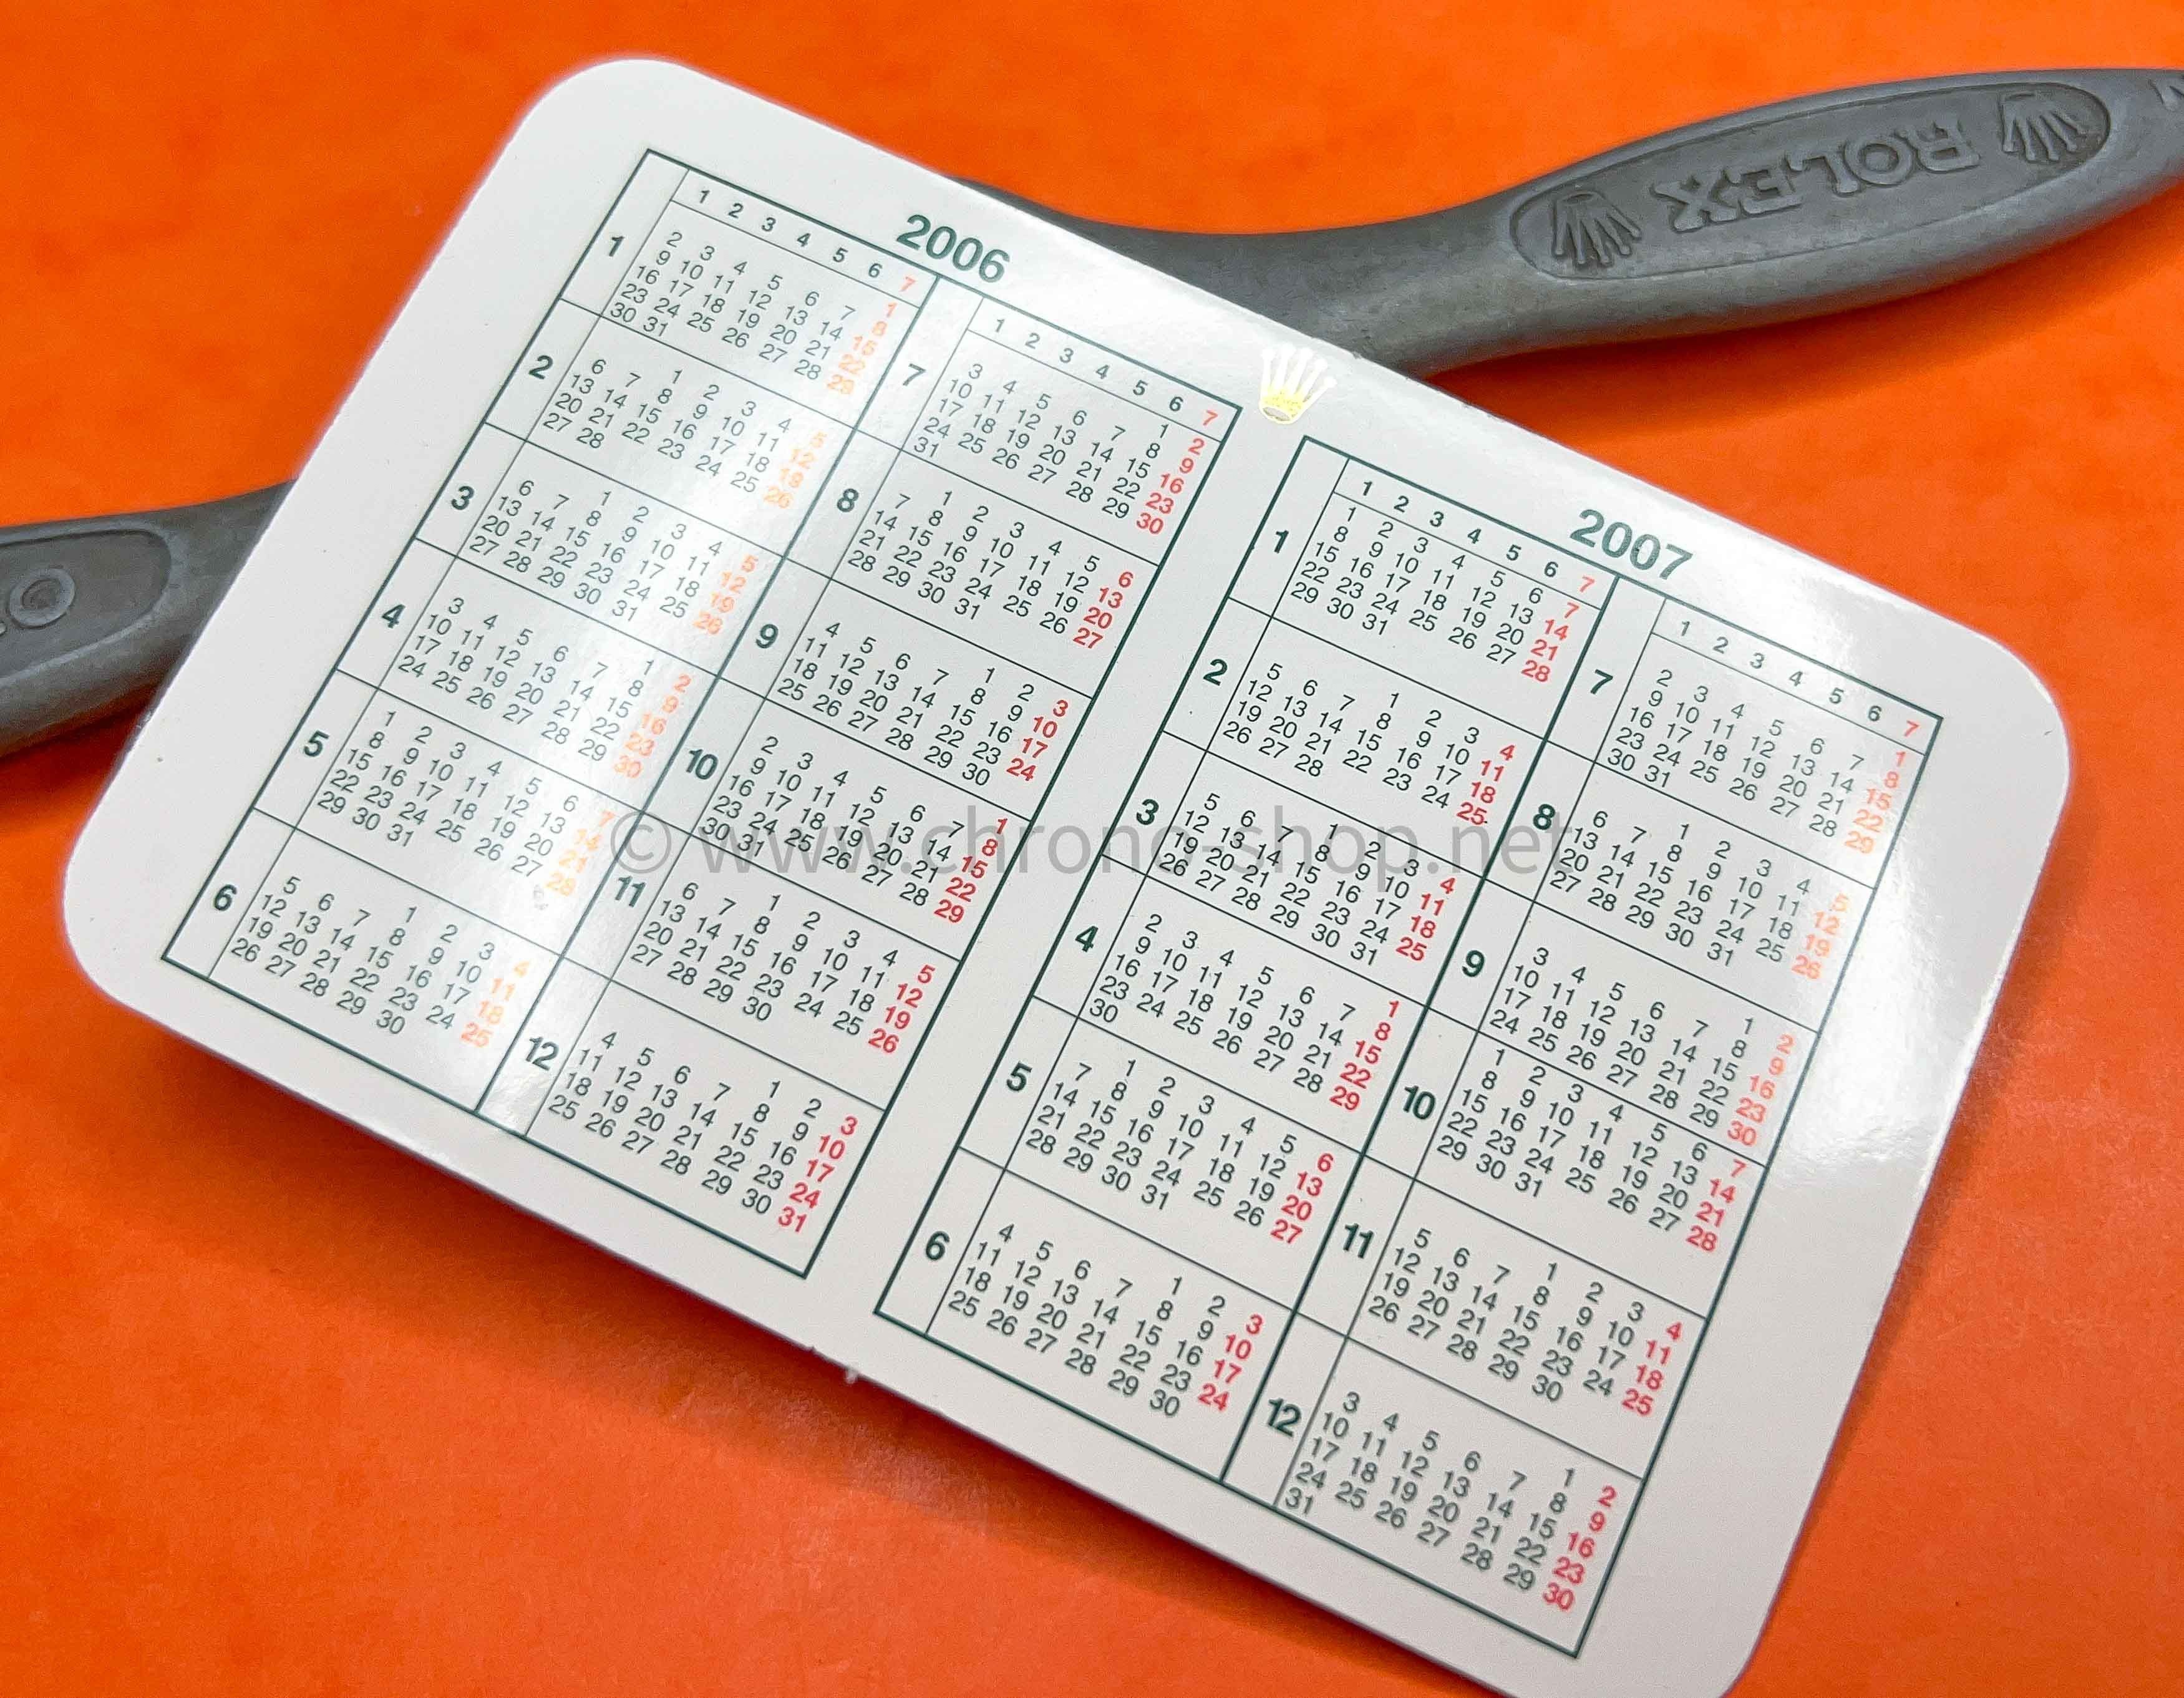 ROLEX
2006
1 2 3 4 5 6 7
1
1
2 3 4 5 6 7 8
9 10 11 12 13 14 15
16 17 18 19 20 21 22
23 24 25 26 27 28 29
30 31
2
1 2 3 4 5
6 7 8 9 10 11 12
13 14 15 16 17 18 19
20 21 22 23 24 25 26
27 28
3
1 2 3 4 5
6 7 8 9 10 11 12
13 14 15 16 17 18 19
20 21 22 23 24 25 26
27 28 29 30 31
4
1 2
3 4 5 6 7 8 9
10 11 12 13 14 15 16
17 18 19 20 21 22 23
24 25 26 27 28 29 30
5
1 2 3 4 5 6 7
8 9 10 11 12 13 14
15 16 17 18 19 20 21
22 23 24 25 26 27 28
29 30 31
6
1 2 3 4
5 6 7 8 9 10 11
12 13 14 15 16 17 18
19 20 21 22 23 24 25
26 27 28 29 30
1 2 3 4 5 6 7
7
1 2
3 4 5 6 7 8 9
10 11 12 13 14 15 16
17 18 19 20 21 22 23
24 25 26 27 28 29 30
31
8
1 2 3 4 5 6
7 8 9 10 11 12 13
14 15 16 17 18 19 20
21 22 23 24 25 26 27
28 29 30 31
9
1 2 3
4 5 6 7 8 9 10
11 12 13 14 15 16 17
18 19 20 21 22 23 24
25 26 27 28 29 30
10
1
2 3 4 5 6 7 8
9 10 11 12 13 14 15
16 17 18 19 20 21 22
23 24 25 26 27 28 29
30 31
11
1 2 3 4 5
6 7 8 9 10 11 12
13 14 15 16 17 18 19
20 21 22 23 24 25 26
27 28 29 30
12
1 2 3
4 5 6 7 8 9 10
11 12 13 14 15 16 17
18 19 20 21 22 23 24
25 26 27 28 29 30 31
2007
1 2 3 4 5 6 7
1
1 2 3 4 5 6 7
8 9 10 11 12 13 14
15 16 17 18 19 20 21
22 23 24 25 26 27 28
29 30 31
2
1 2 3 4
5 6 7 8 9 10 11
12 13 14 15 16 17 18
19 20 21 22 23 24 25
26 27 28
3
1 2 3 4
5 6 7 8 9 10 11
12 13 14 15 16 17 18
19 20 21 22 23 24 25
26 27 28 29 30 31
4
1
2 3 4 5 6 7 8
9 10 11 12 13 14 15
16 17 18 19 20 21 22
23 24 25 26 27 28 29
30
5
1 2 3 4 5 6
7 8 9 10 11 12 13
14 15 16 17 18 19 20
21 22 23 24 25 26 27
28 29 30 31
6
1 2 3
4 5 6 7 8 9 10
11 12 13 14 15 16 17
18 19 20 21 22 23 24
25 26 27 28 29 30
1 2 3 4 5 6 7
7
1
2 3 4 5 6 7 8
9 10 11 12 13 14 15
16 17 18 19 20 21 22
23 24 25 26 27 28 29
30 31
8
1 2 3 4 5
6 7 8 9 10 11 12
13 14 15 16 17 18 19
20 21 22 23 24 25 26
27 28 29 30 31
9
1 2
3 4 5 6 7 8 9
10 11 12 13 14 15 16
17 18 19 20 21 22 23
24 25 26 27 28 29 30
10
1 2 3 4 5 6 7
8 9 10 11 12 13 14
15 16 17 18 19 20 21
22 23 24 25 26 27 28
29 30 31
11
1 2 3 4
5 6 7 8 9 10 11
12 13 14 15 16 17 18
19 20 21 22 23 24 25
26 27 28 29 30
12
1 2
3 4 5 6 7 8 9
10 11 12 13 14 15 16
17 18 19 20 21 22 23
24 25 26 27 28 29 30
31
© www.chrono-shop.net